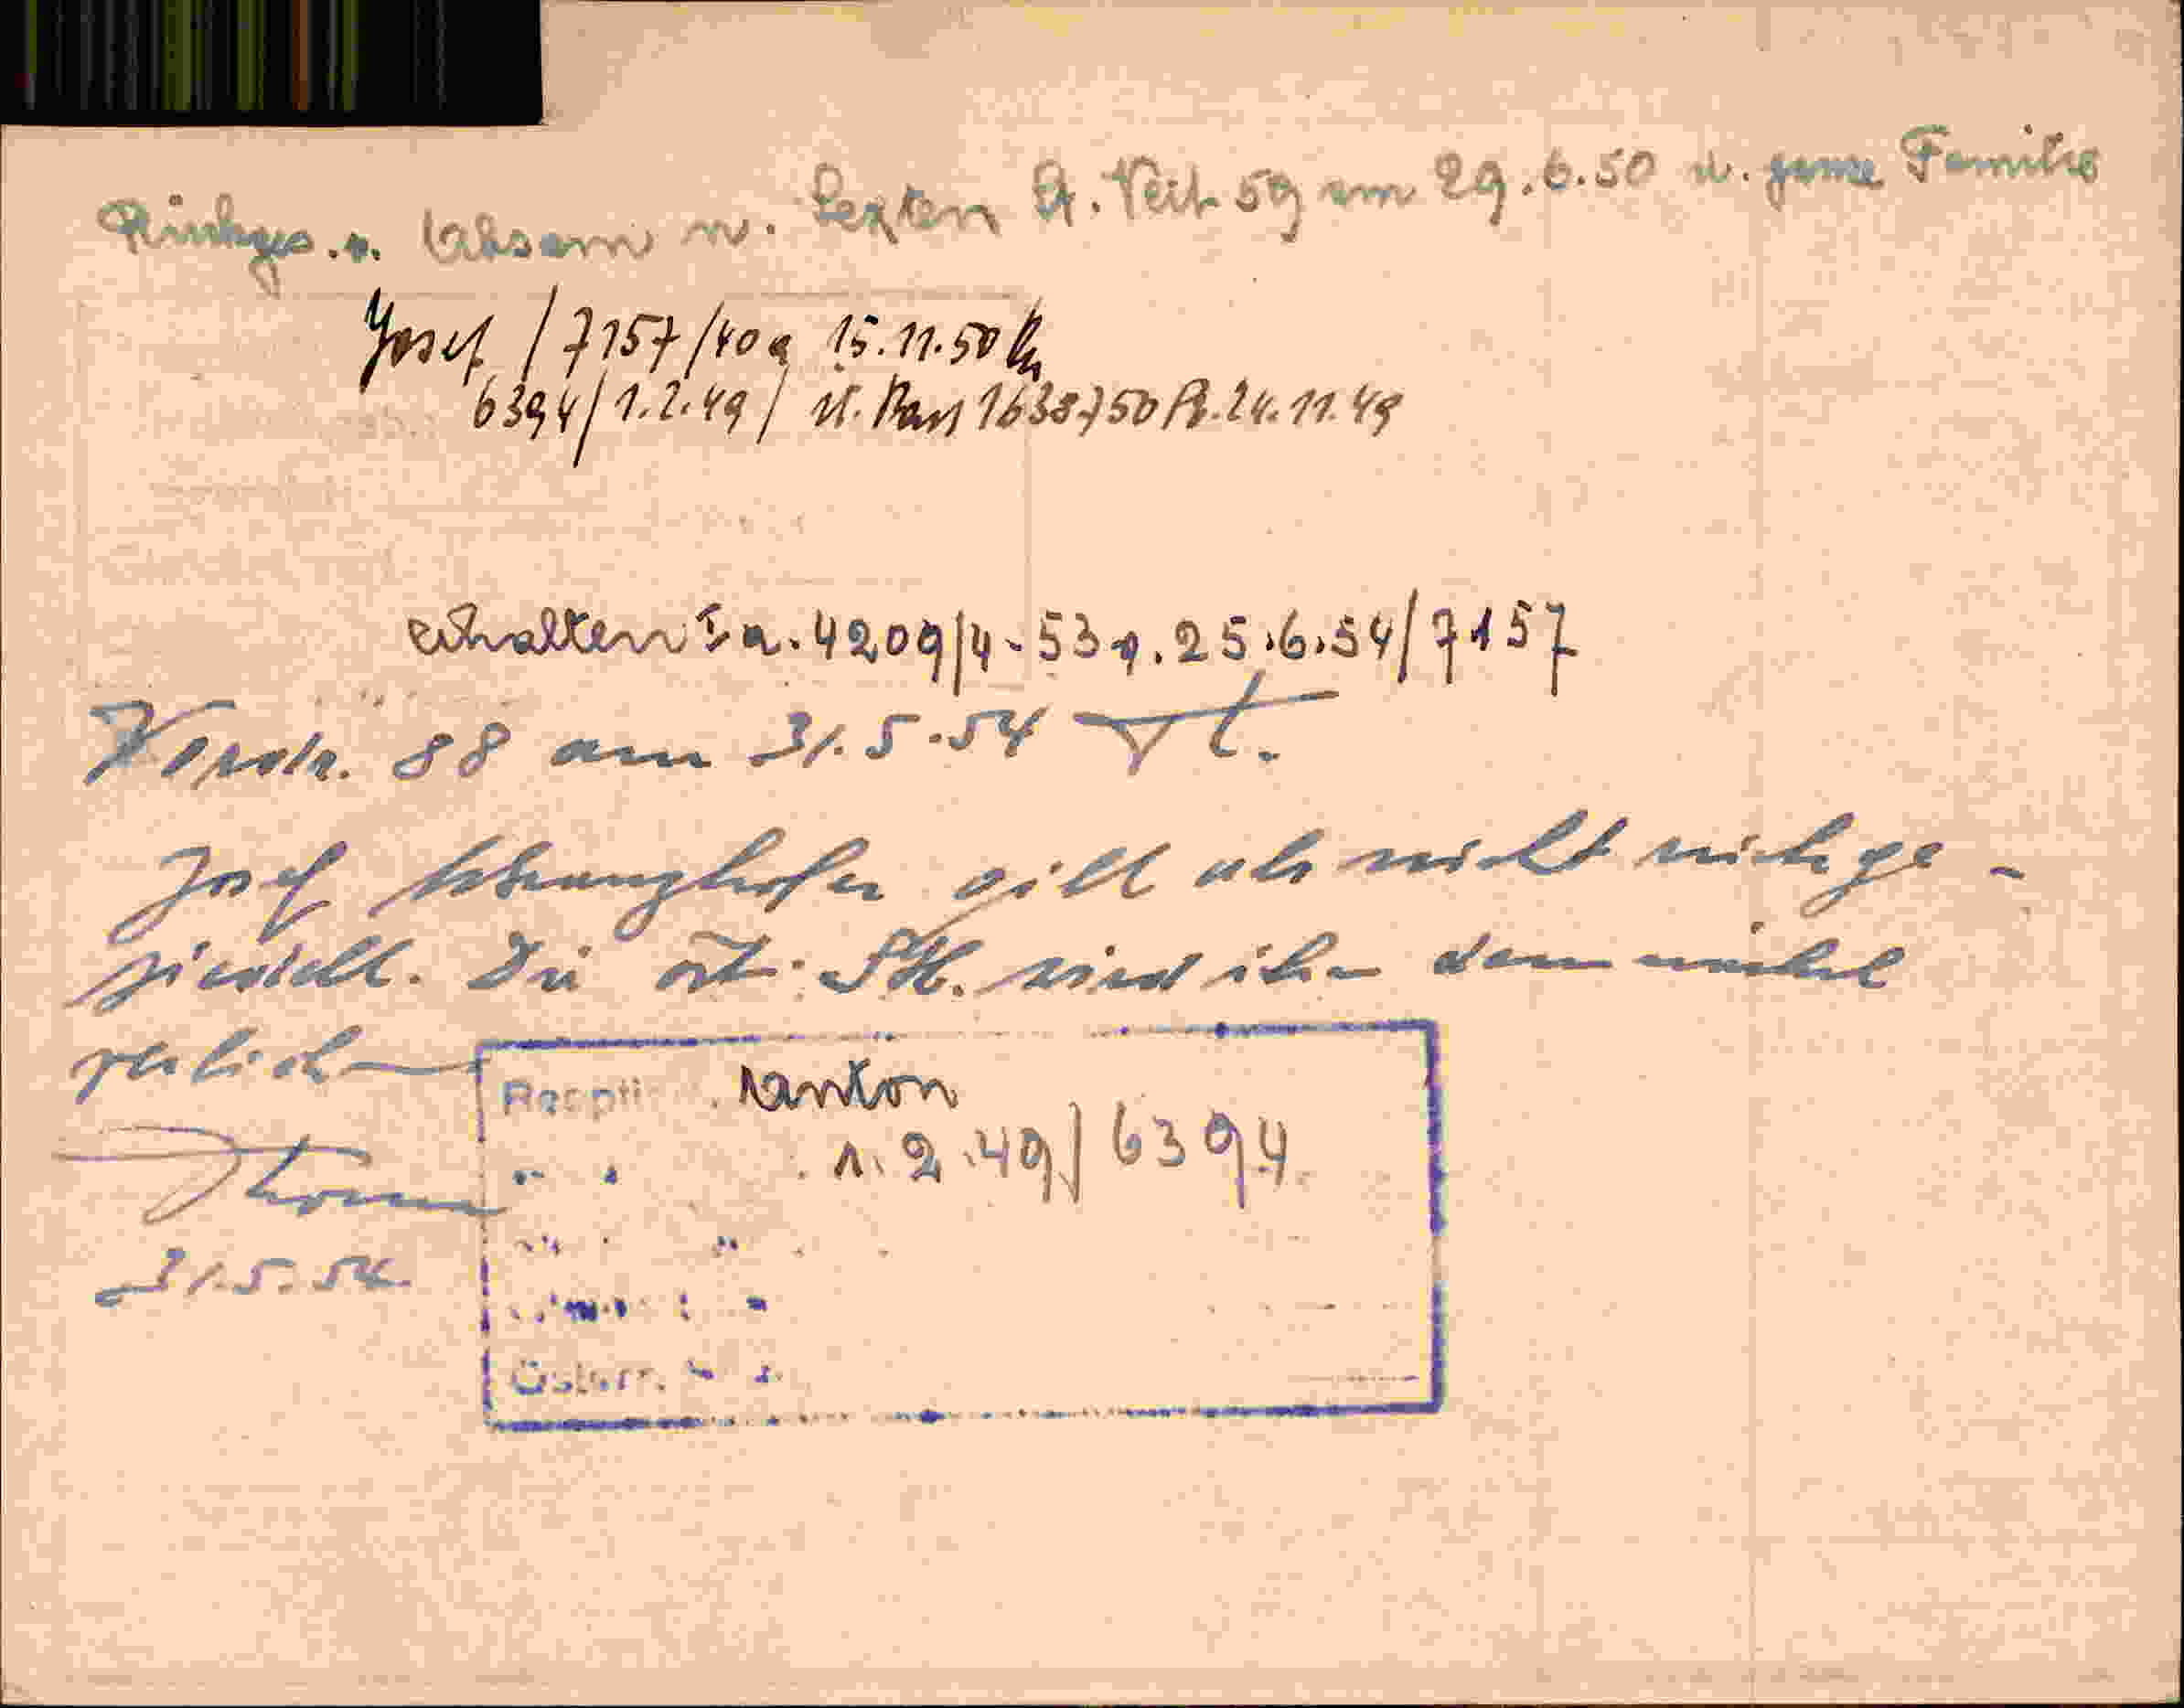 Rückges. v. Absam n. Sexten St. Veit 59 am 29.6.50 u. ganze Familie
Josef / 7157/40a 15.11.50
6394/1.2.49 / it. Pass 1638750 R. 24.11.49
erhalten I a. 4209/4-53 v. 25.6.54/7157
Vordr. 88 am 31.5.54
Josef gilt als nicht rückge-
siedelt. Die öst. StB. wird ihm demnächst
verliehen
Kanton
1.2.49/6394
Thoma
31.5.54
Österr.